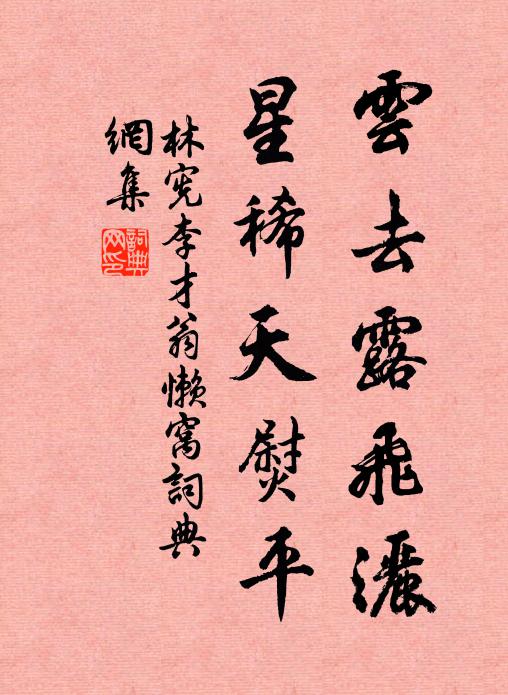 雲去露飛灑
星稀天熨平
林宪李才翁懒窩詞典
網集
詞典网印